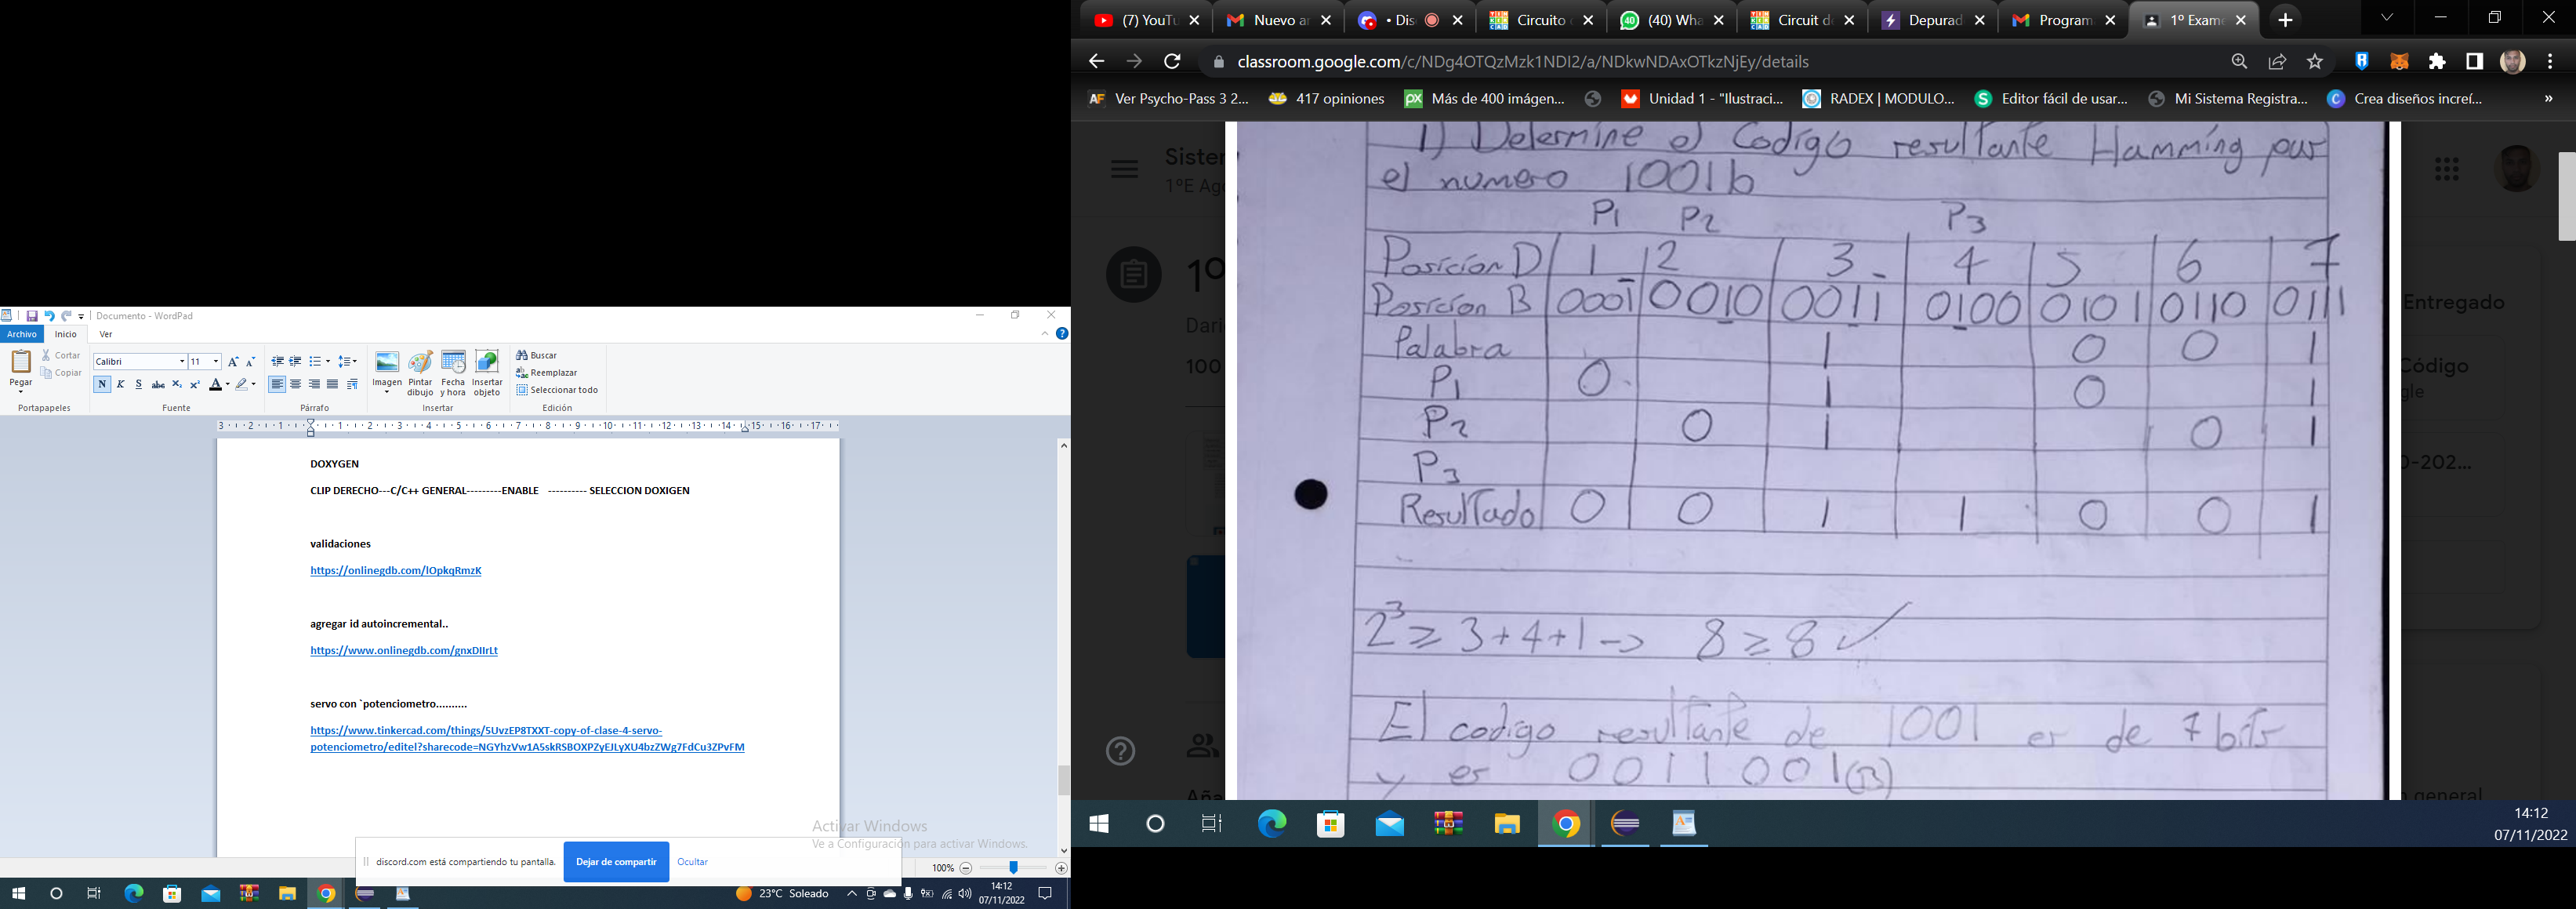 Documento - WordPad
Archivo Inicio Ver
Pegar
Cortar
Copiar
Portapapeles
Calibri 11
N K S abc X₂ X² A
Fuente
Párrafo
Imagen
Pintar dibujo
Fecha y hora
Insertar objeto
Insertar
Buscar
Reemplazar
Seleccionar todo
Edición
3 2 1 1 2 3 4 5 6 7 8 9 10 11 12 13 14 15 16 17
DOXYGEN
CLIP DERECHO---C/C++ GENERAL---------ENABLE ---------- SELECCION DOXIGEN
validaciones
https://onlinegdb.com/lOpkqRmzK
agregar id autoincremental..
https://www.onlinegdb.com/gnxDIIrLt
servo con `potenciometro..........
https://www.tinkercad.com/things/5UvzEP8TXXT-copy-of-clase-4-servo-
potenciometro/editel?sharecode=NGYhzVw1A5skRSBOXPZyEJLyXU4bzZWg7FdCu3ZPvFM
Activar Windows
Ve a Configuración para activar Windows.
discord.com está compartiendo tu pantalla. Dejar de compartir Ocultar
100%
23°C Soleado
14:12
07/11/2022
(7) YouTu Nuevo ar • Dis Circuito (40) Wha Circuit de Depurad Program 1º Exame
classroom.google.com/c/NDg4OTQzMzk1NDI2/a/NDkwNDAxOTkzNjEy/details
Ver Psycho-Pass 3 2... 417 opiniones Más de 400 imágen... Unidad 1 - "Ilustraci... RADEX | MODULO... Editor fácil de usar... Mi Sistema Registra... Crea diseños increí... »
Sister
1ºE Ago
1º
Dari
100
Aña
Entregado
Código
gle
0-202...
n general
1) Determine el Codigo resultante Hamming par
el numero 1001b
P1 P2 P3
Posicion D 1 2 3 4 5 6 7
Posicion B 0001 0010 0011 0100 0101 0110 0111
Palabra 1 0 0 1
P1 0 1 0 1
P2 0 1 0 1
P3
Resultado 0 0 1 1 0 0 1
2³ ≥ 3+4+1 -> 8 ≥ 8 ✓
El codigo resultante de 1001 es de 7 bits
y es 0011001(B)
14:12
07/11/2022